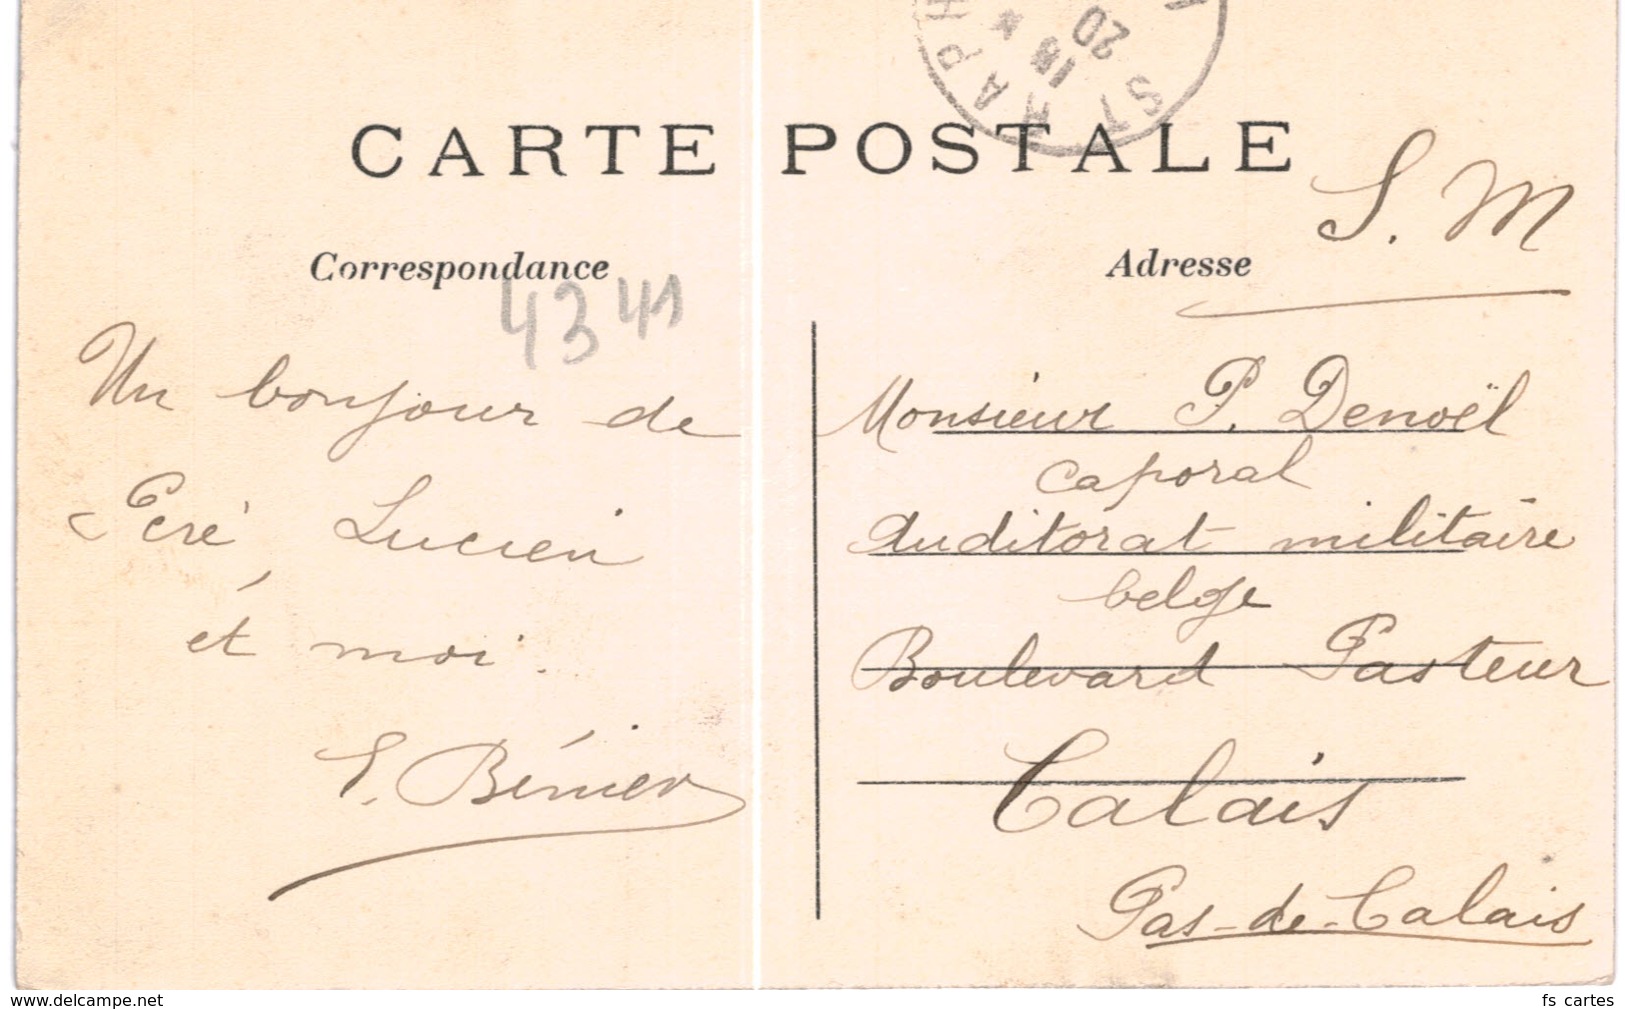 CARTE POSTALE
S. M
Correspondance
4341
Un bonjour de
Lucien
et moi.
E. Bénier
Adresse
Monsieur P. Denoël
caporal
Auditorat militaire
belge
Boulevard Pasteur
Calais
Pas-de-Calais
ST RAPH
18
20
www.delcampe.net
fs cartes